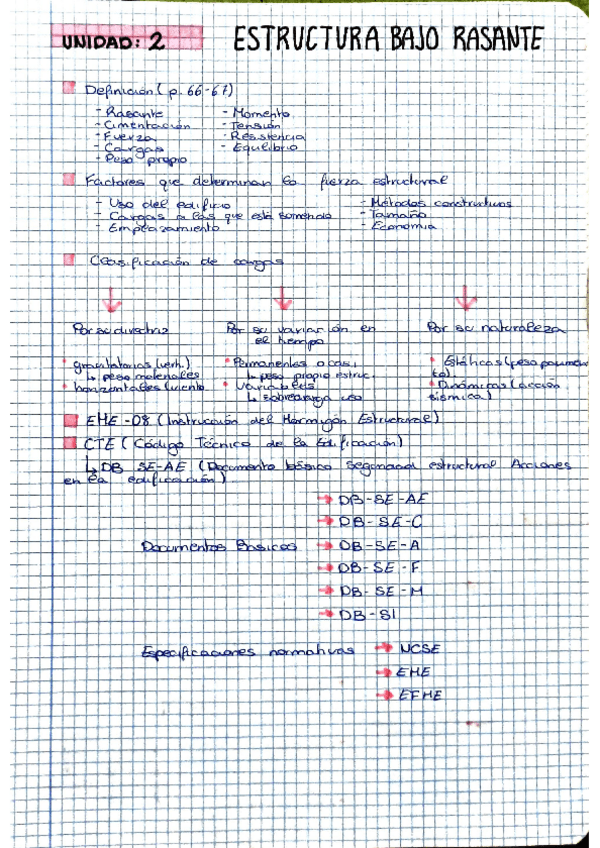 UNIDAD: 2 ESTRUCTURA BAJO RASANTE
Definición (p. 66-67)
- Rasante - Momento
- Cimentación - Tensión
- Fuerza - Resistencia
- Cargas - Equilibrio
- Peso propio
Factores que determinan la fuerza estructural
- Uso del edificio - Métodos constructivos
- Cargas a las que está somendo - Tamaño
- Emplazamiento - Economia
Clasificación de cargas
Por su directriz Por su variación en Por su naturaleza
el tiempo
• gravitatorias (vert.) • Permanentes o casi • Estáticas (peso
↳ peso materiales ↳ peso propio estruc. tal).
• horizontales (viento • Variables • Dinámicas (acción
↳ sobrecarga uso sísmica)
EHE-08 (Instrucción del Hormigón Estructural)
CTE (Código Técnico de la Edificación)
↳ DB SE-AE (Documento básico estructural Acciones
en la edificación)
→ DB-SE-AE
→ DB-SE-C
Documentos Basicos → DB-SE-A
→ DB-SE-F
→ DB-SE-M
→ DB-SI
Especificaciones normativas → NCSE
→ EHE
→ EFHE